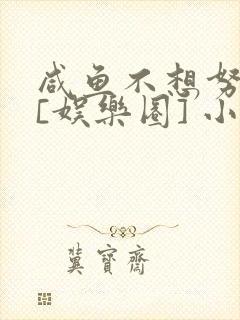 咸鱼不想努
[娱樂圈] 小
冀寳齋